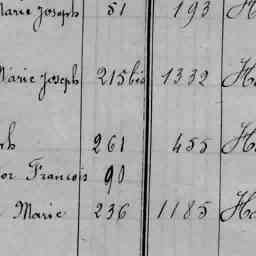 Marie Joseph 51 193
Marie Joseph 215 bis 1332
ph 261 455
or Francois 90
Marie 236 1185